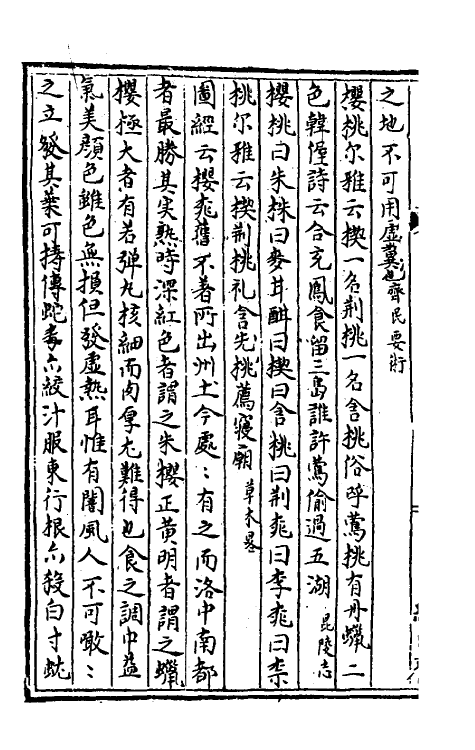 之地不可用虛糞也齊民要術
櫻桃尔雅云楔一名荆桃一名含桃俗呼鶯桃有丹蠟二
色韓偓詩云合充鳳食留三島誰許鶯偷過五湖毘陵志
櫻桃曰朱株曰麥甘酣曰楔曰含桃曰荆桃曰李桃曰柰
桃尔雅云楔荆桃礼含先桃薦寢廟草木畧
圖經云櫻桃舊不著所出州土今處:有之而洛中南都
者最勝其实熟時深紅色者謂之朱櫻正黄明者謂之蠟
櫻極大者有若弹丸核細而肉厚尤難得也食之調中益
氣美顔色雖色無損但發虛熱耳惟有闇風人不可啖:
之立發其葉可擣傅蛇毒亦絞汁服東行根亦殺白寸蚘